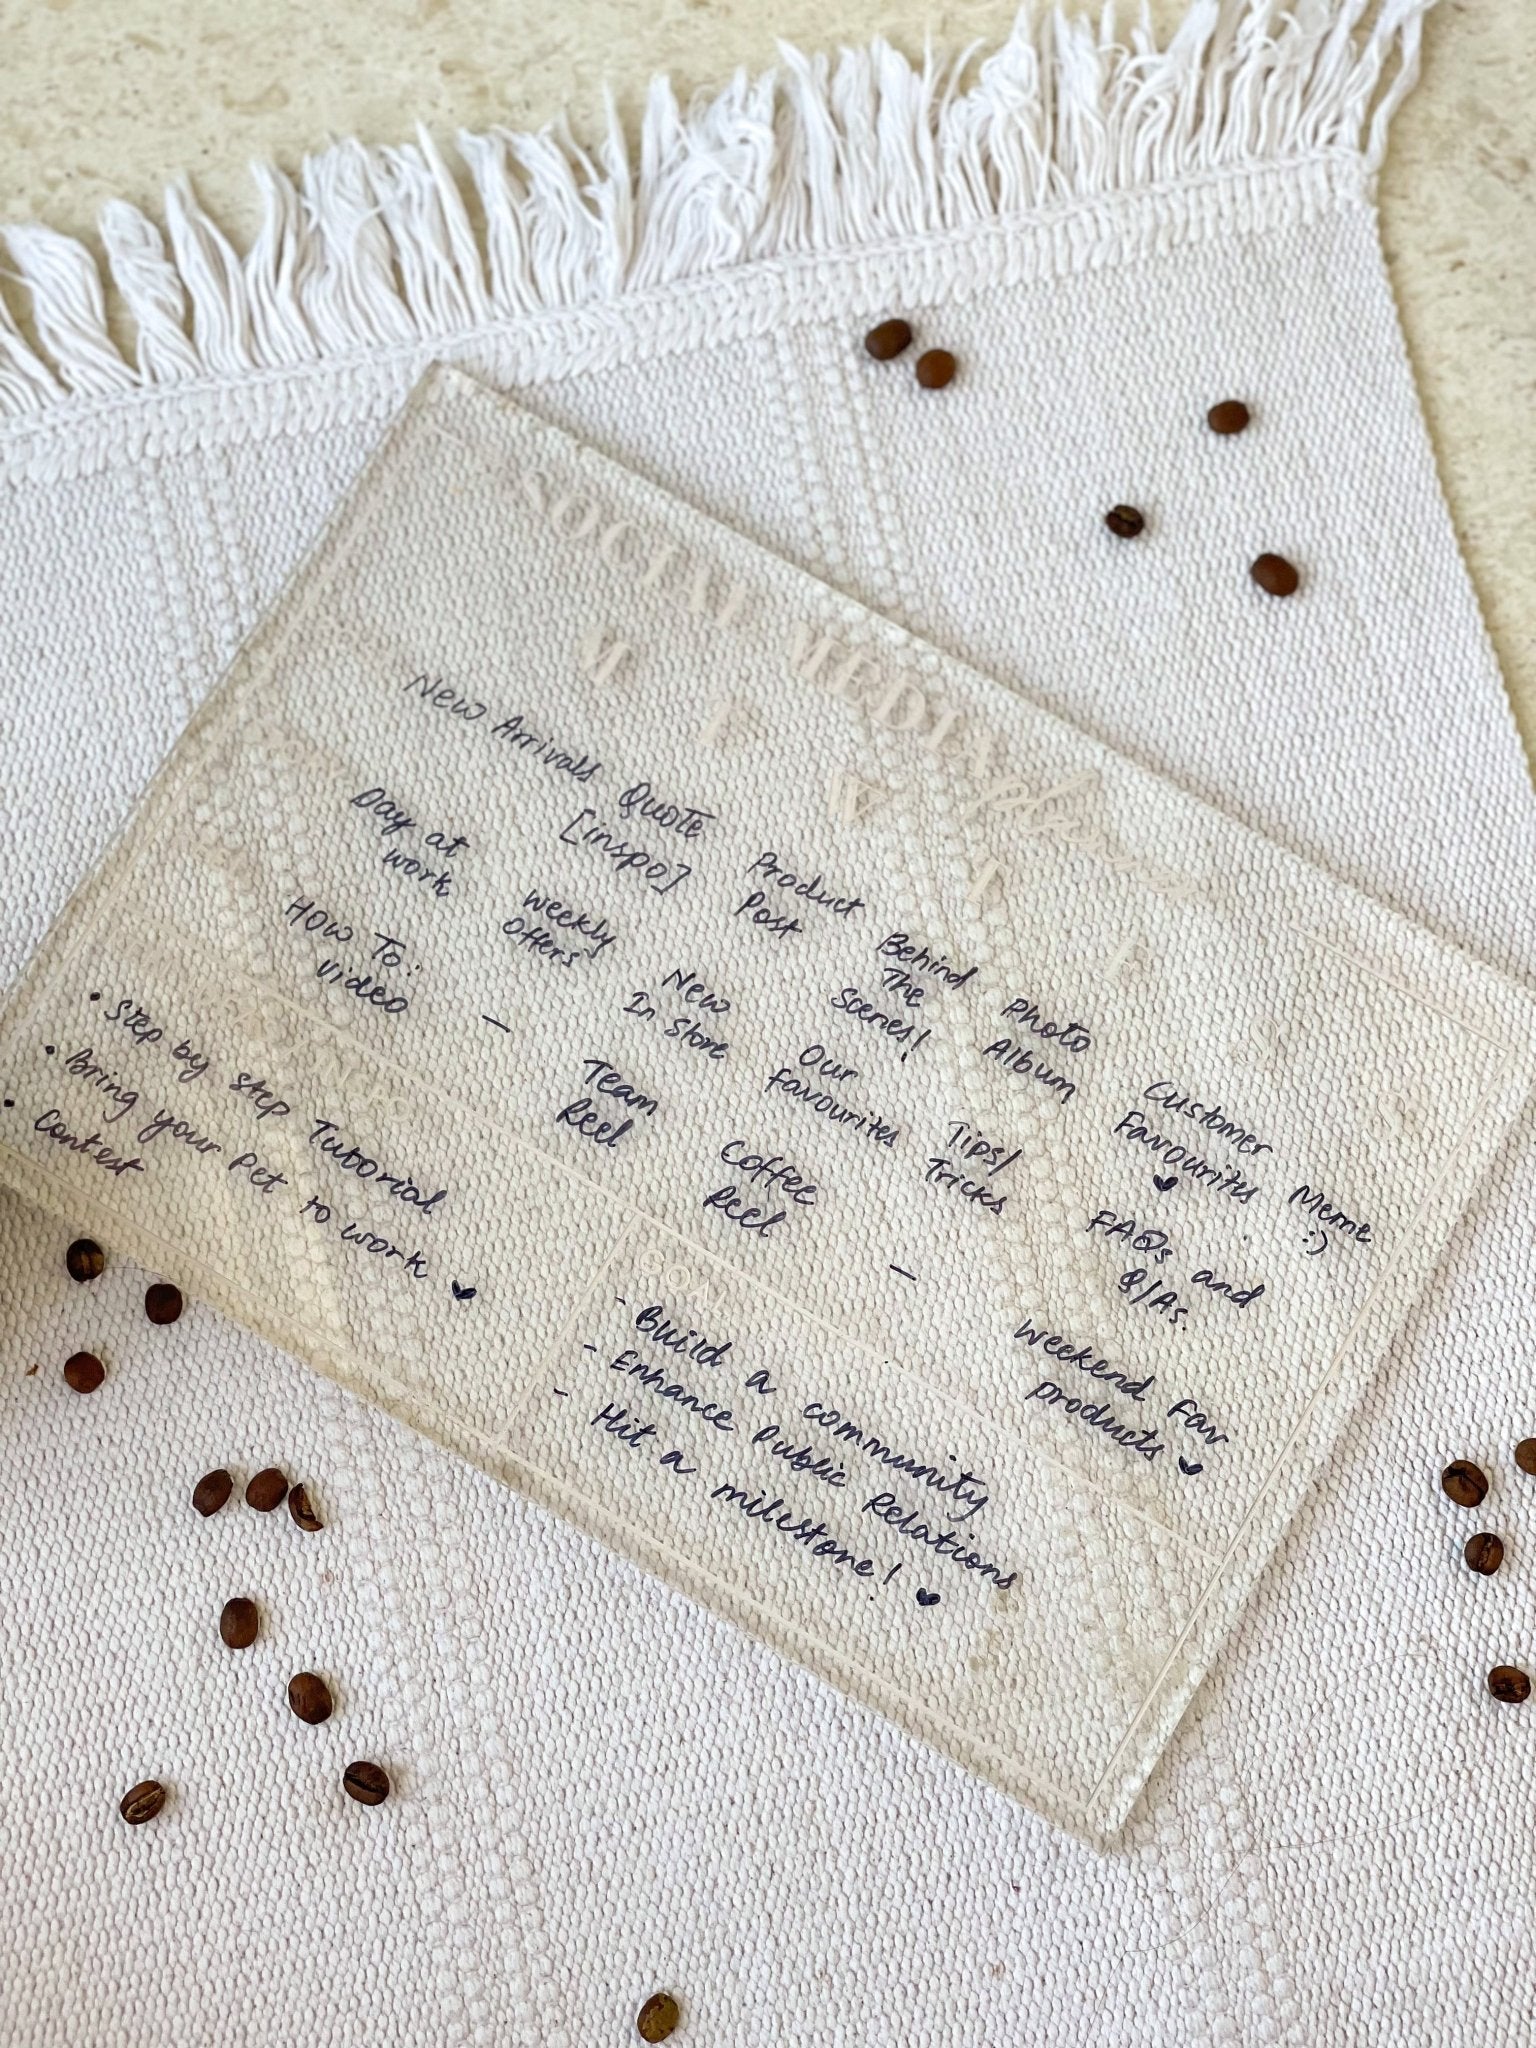 SOCIAL MEDIA planner
M T W T F S S
New Arrivals
Quote
[inspo]
Product
Post
Behind
The
Scenes!
Photo
Album
Customer
Favourites
Meme
:)
Day at
work
Weekly
Offers
New
In Store
Our
Favourites
Tips/
Tricks
FAQs and
Q/As.
How To:
Video
—
Team
Reel
Coffee
Reel
—
Weekend Fav
products
• Step by step Tutorial
• Bring your Pet to work
• Contest
GOALS
- Build a community
- Enhance Public Relations
- Hit a milestone!